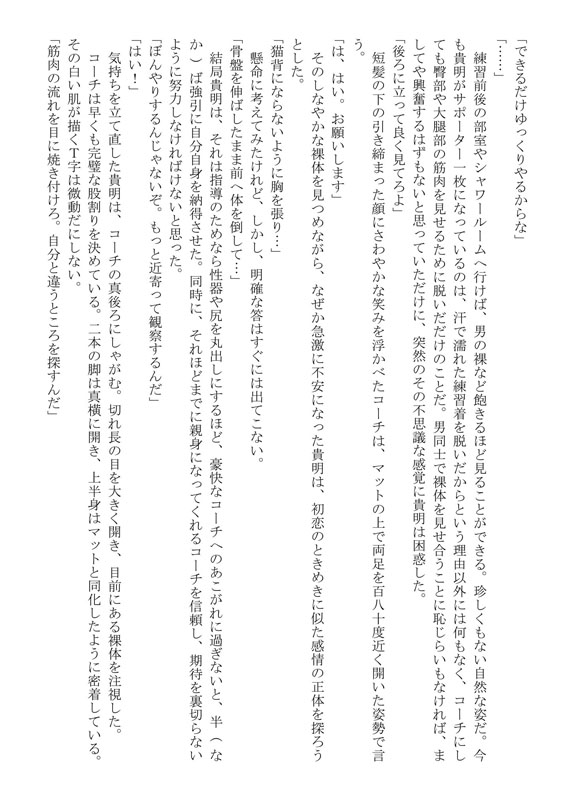 「できるだけゆっくりやるからな」
「……」
　練習前後の部室やシャワールームへ行けば、男の裸など飽きるほど見ることができる。珍しくもない自然な姿だ。今
も貴明がサポーター一枚になっているのは、汗で濡れた練習着を脱いだからという理由以外には何もなく、コーチにし
ても臀部や大腿部の筋肉を見せるために脱いだだけのことだ。男同士で裸体を見せ合うことに恥じらいもなければ、ま
してや興奮するはずもないと思っていただけに、突然のその不思議な感覚に貴明は困惑した。
「後ろに立って良く見てろよ」
　短髪の下の引き締まった顔にさわやかな笑みを浮かべたコーチは、マットの上で両足を百八十度近く開いた姿勢で言
う。
「は、はい。お願いします」
　そのしなやかな裸体を見つめながら、なぜか急激に不安になった貴明は、初恋のときめきに似た感情の正体を探ろう
とした。
「猫背にならないように胸を張り…」
　懸命に考えてみたけれど、しかし、明確な答はすぐには出てこない。
「骨盤を伸ばしたまま前へ体を倒して…」
　結局貴明は、それは指導のためなら性器や尻を丸出しにするほど、豪快なコーチへのあこがれに過ぎないと、半（な
か）ば強引に自分自身を納得させた。同時に、それほどまでに親身になってくれるコーチを信頼し、期待を裏切らない
ように努力しなければけないと思った。
「ぼんやりするんじゃないぞ。もっと近寄って観察するんだ」
「はい！」
　気持ちを立て直した貴明は、コーチの真後ろにしゃがむ。切れ長の目を大きく開き、目前にある裸体を注視した。
　コーチは早くも完璧な股割りを決めている。二本の脚は真横に開き、上半身はマットと同化したように密着している。
その白い肌が描くＴ字は微動だにしない。
「筋肉の流れを目に焼き付けろ。自分と違うところを探すんだ」